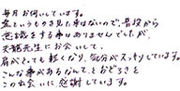 毎月お伺いしています。
霊というものを見た事はないので、普段から
意識をする事はありませんでしたが、
先生にお会いして、
肩がとても軽くなり、気分がスッキリしています。
こんな事があるなんて、とおどろきと
この出会いに感謝しています。